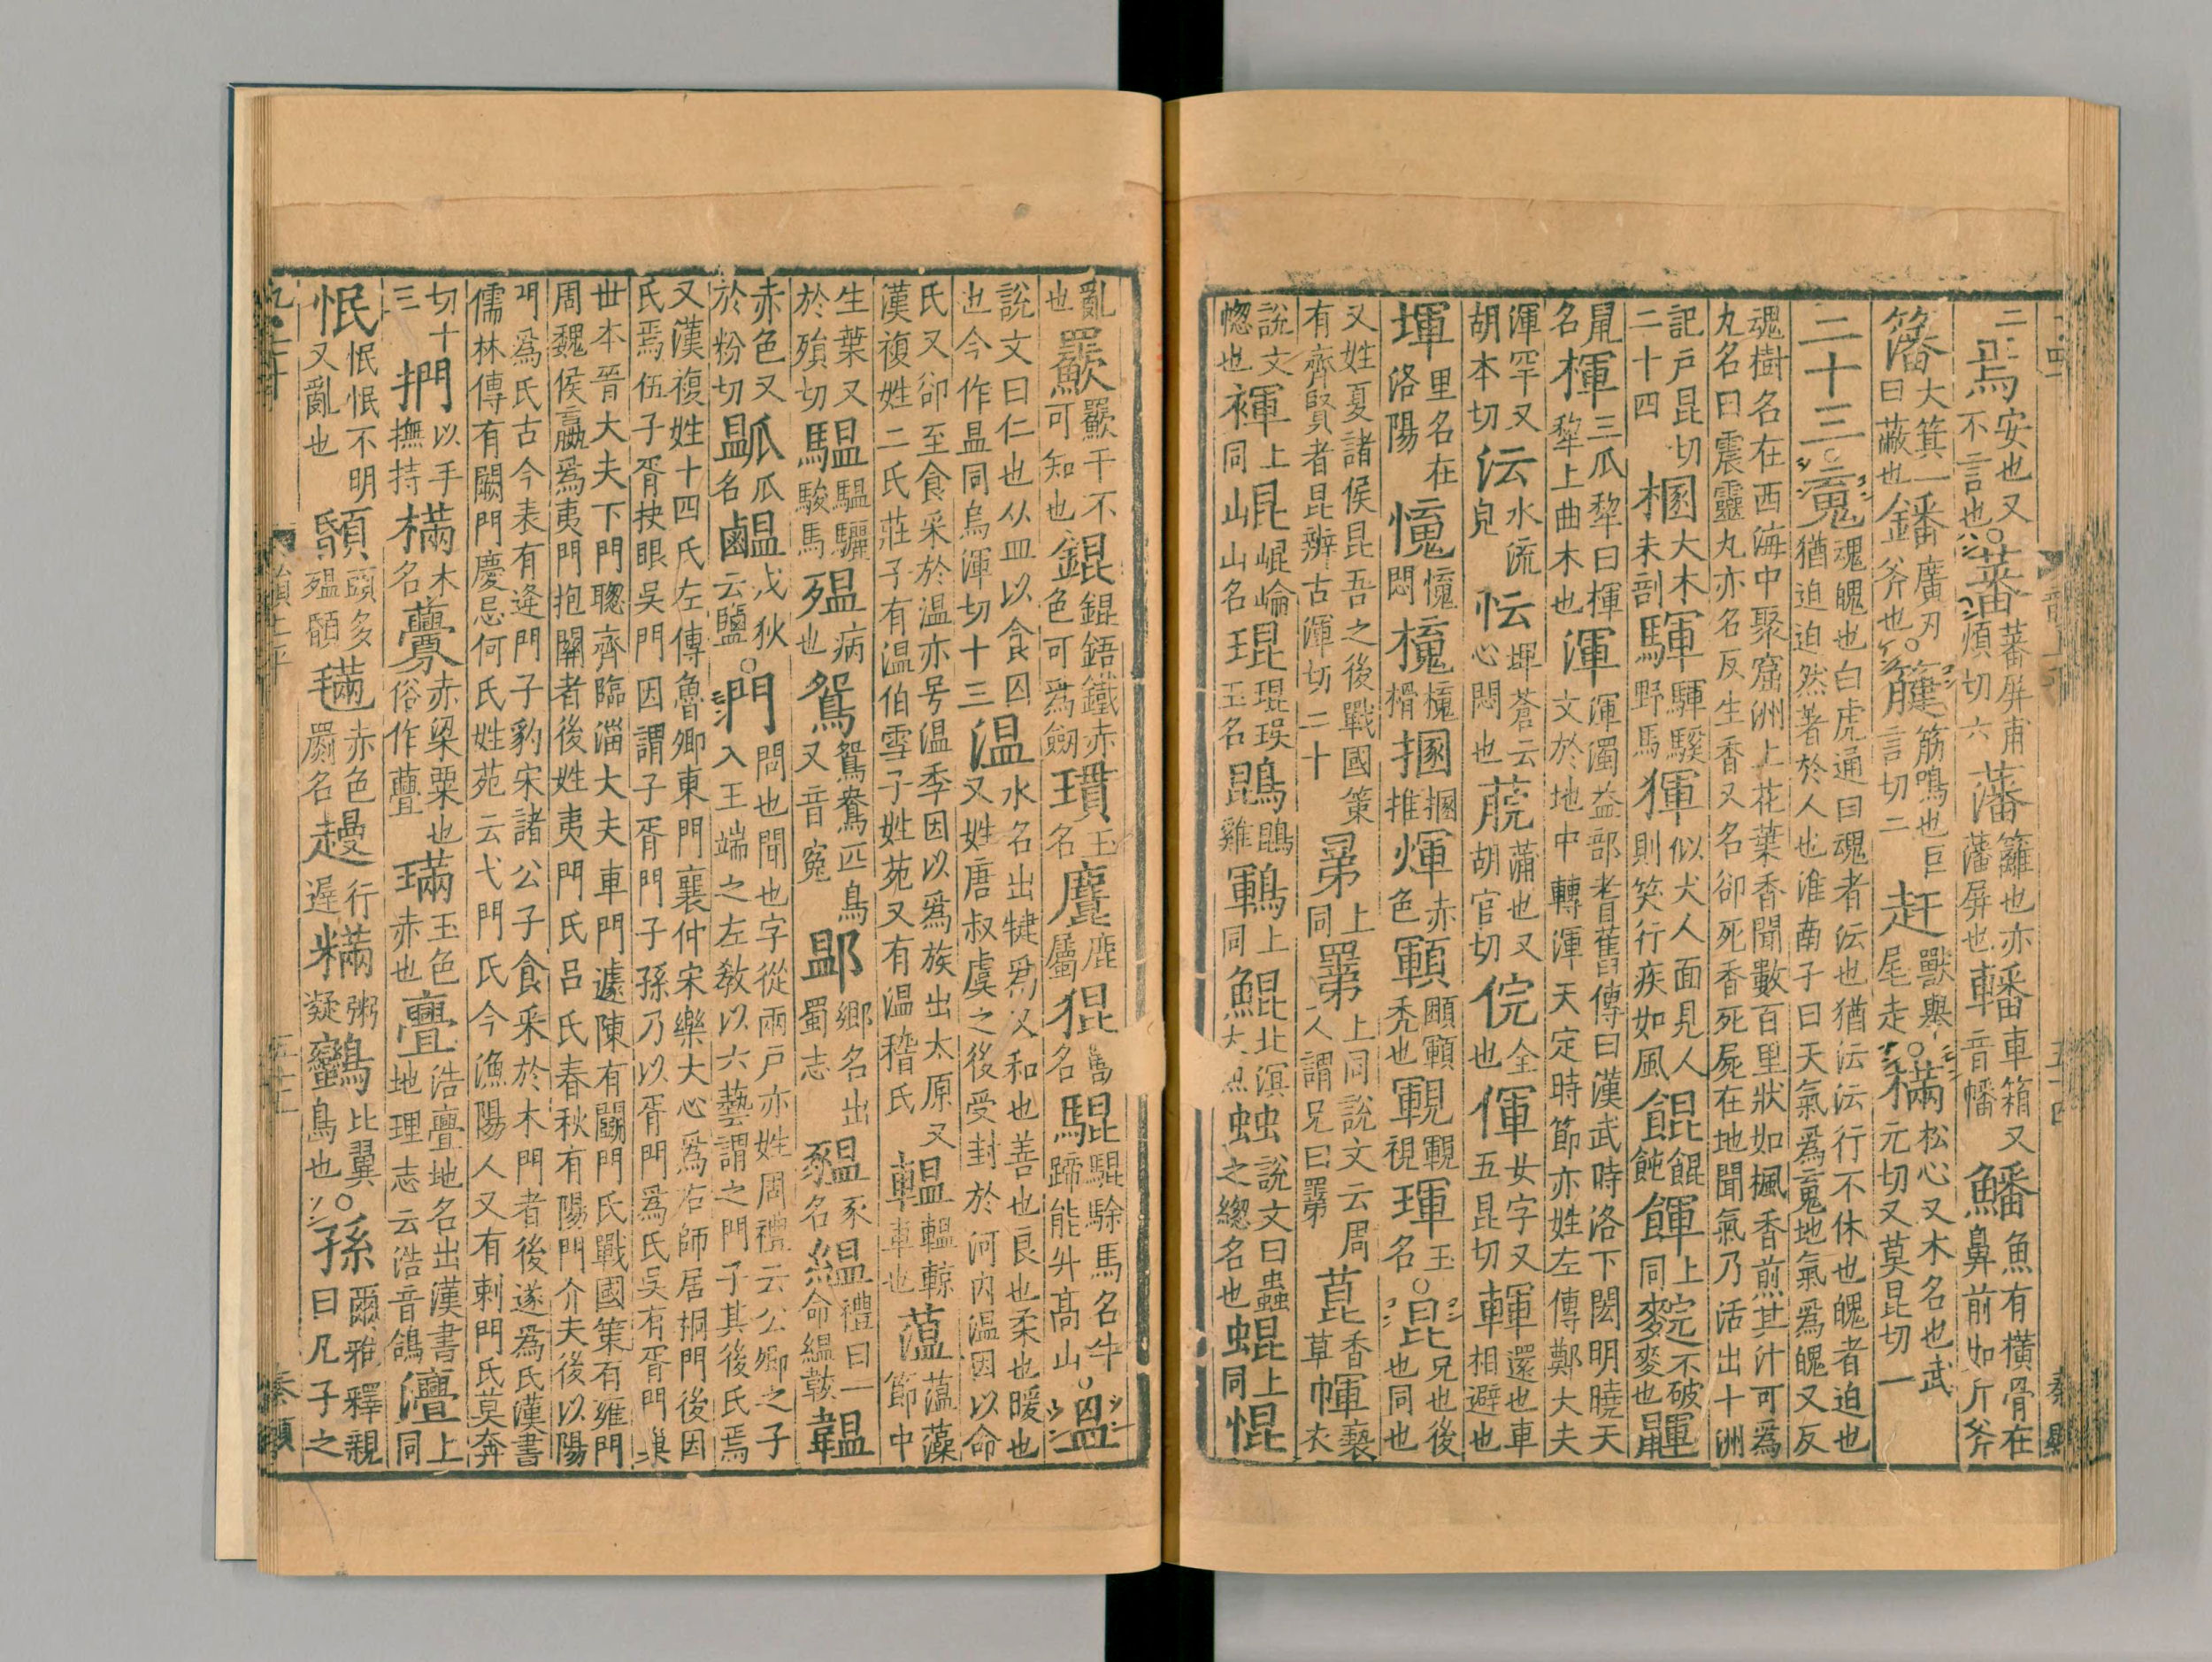 二 焉 安也又不言也 ○蕃 蕃屏甫煩切六 藩 籬也亦藩屏也 轓 車箱又音幡 鱕 魚有橫骨在鼻前如斤斧
籓 大箕一曰蔽也 鐇 廣刃斧也 ○ 筋鳴也巨言切二 赶 獸舉尾走 ○樠 松心又木名也武元切又莫昆切一
二十三○䰟 魂魄也白虎通曰魂者沄也猶沄沄行不休也魄者迫也猶迫迫然著於人也淮南子曰天氣爲䰟地氣爲魄又反
魂樹名在西海中聚窟洲上花葉香聞數百里狀如楓香煎其汁可爲丸名曰震靈丸亦名反生香又名卻死香死屍在地聞氣乃活出十洲
記戶昆切二十四 棞 大木未剖 騨 騨騱野馬 㹆 似犬人面見人則笑行疾如風 餛 餛飩 餫 上同 䴷 不破麥也 䶐
鼠名 楎 三爪犂曰楎犂上曲木也 渾 渾濁益部耆舊傳曰漢武時洛下閎明曉天文於地中轉渾天定時節亦姓左傳鄭大夫
渾罕又胡本切 沄 水流皃 忶 埤蒼云心悶也 萖 蒲也又胡官切 俒 全也 㑮 女字又五昆切 䡣 還也車相避也
堚 里名在洛陽 㥵 㥵悶 櫆 榾 掴 推 煇 赤色 顐 秃也 視 琿 玉名 ○昆 兄也後也同也
又姓夏諸侯昆吾之後戰國策有齊賢者昆辯古渾切二十 䍏 上同 𦋅 上同說文云周人謂兄曰𦋅 菎 香草 㡓 褻衣
說文幒也 褌 上同 崐 崐崘山名 琨 琨珸玉名 鵾 鵾雞 鶤 上同 鯤 北溟大魚 蚰 說文曰蟲之總名也 蜫 上同 惃
亂也 𣤯 干不可知也 錕 錕鋙鐵赤色可爲劒 瓄 玉名 麏 鹿屬 猑 獸名 騉 騉駼馬名牛蹄能升高山 ○昷
說文曰仁也从皿以食囚也今作昷同烏渾切十三 温 水名出犍爲又和也善也良也柔也暖也又姓唐叔虞之後受封於河內温因以命
氏又卻至食采於温亦号温季因以爲族出太原又漢複姓二氏莊子有温伯雪子姓苑又有温稽氏 輼 輼輬車也 薀 薀藻節中
生葉又於殞切 騉 驪駿馬 殟 病也 鴛 鴛鴦匹鳥又音寃 䣝 鄉名出蜀志 豱 豕名 緼 禮曰一命緼韍 韞
赤色又於粉切 瓜名 戎狄云鹽 ○門 問也聞也字從兩戶亦姓周禮云公卿之子入王端之左敎以六藝謂之門子其後氏焉
又漢複姓十四氏左傳魯卿東門襄仲宋樂大心爲右師居桐門後因氏焉伍子胥抉眼吳門因謂子胥門子孫乃以胥門爲氏吳有胥門巢
世本晉大夫下門聰齊臨淄大夫車門遽陳有闕門氏戰國策有雍門周魏侯嬴爲夷門抱關者後姓夷門氏呂氏春秋有陽門介夫後以陽
門爲氏古今表有逢門子豹宋諸公子食采於木門者後遂爲氏漢書儒林傳有闕門慶忌何氏姓苑云弋門氏今漁陽人又有剌門氏莫奔
切十三 捫 以手撫持 樠 木名 虋 赤梁粟也俗作亹 璊 玉色赤也 亹 浩亹地名出漢書地理志云浩音鴿 㵾 上同
怋 怋怋不明又亂也 頭多殟䫒 𣯩 赤色罽名 行遲 糒 粥凝 䳱 比翼鳥也 ○孫 爾雅釋親曰凡子之